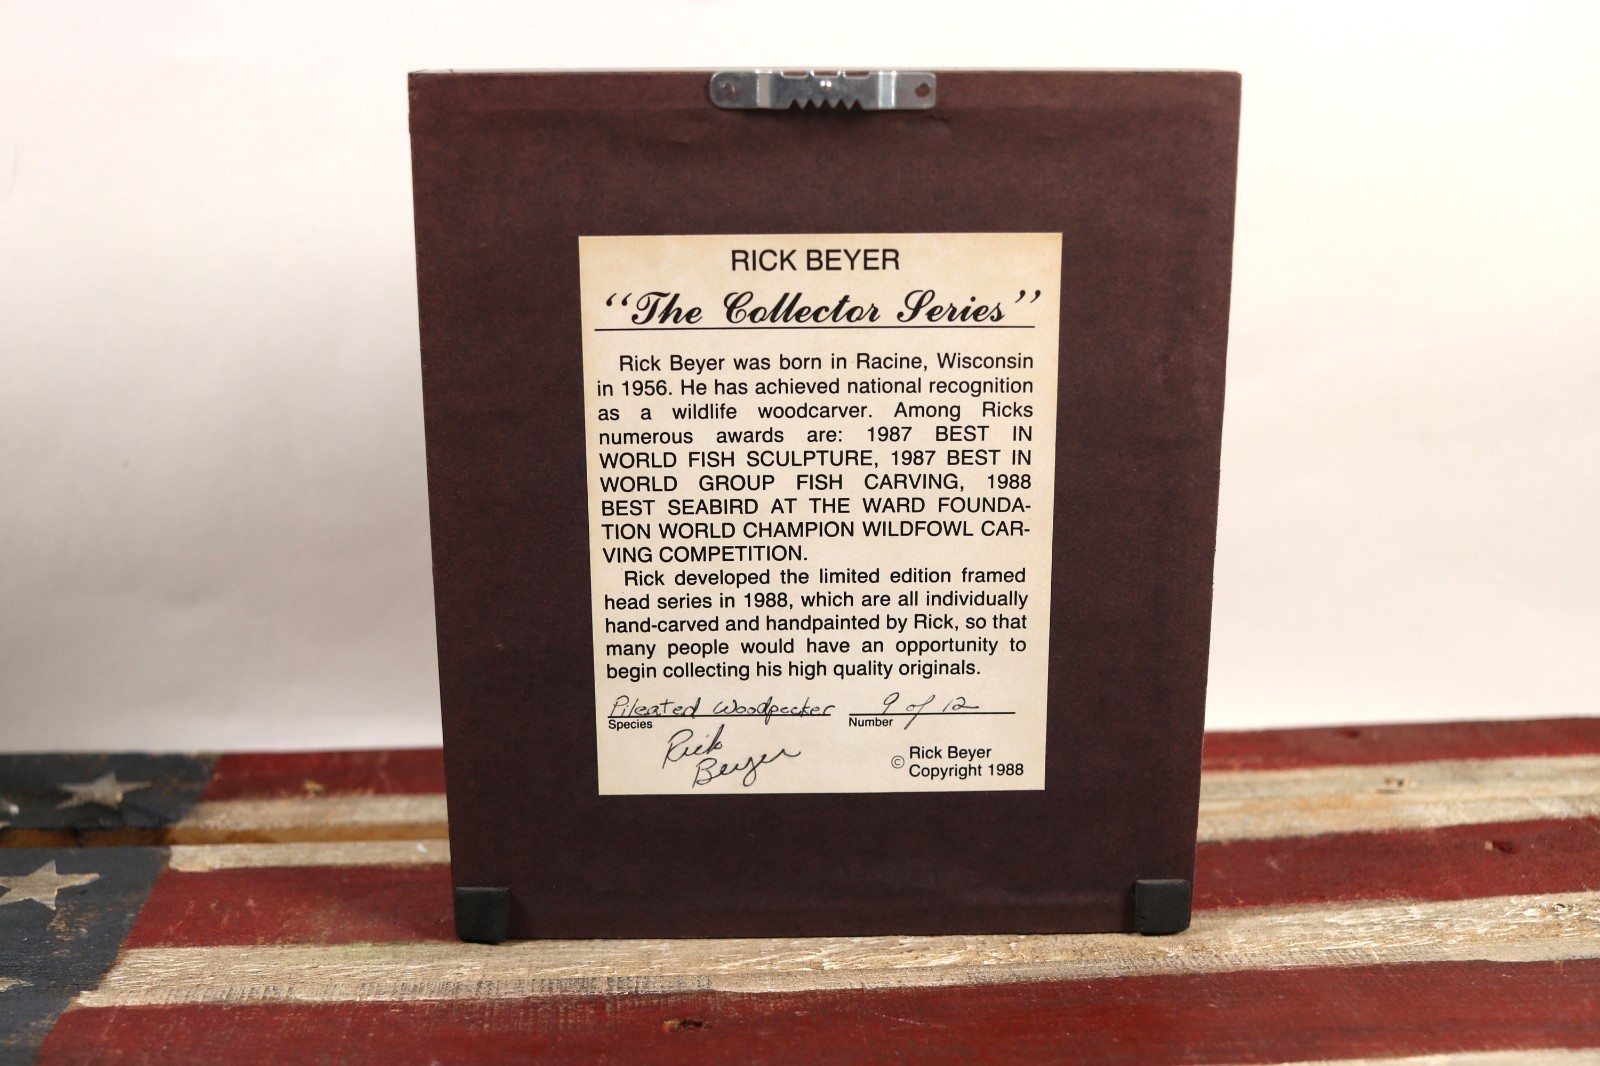 RICK BEYER
“The Collector Series”
Rick Beyer was born in Racine, Wisconsin
in 1956. He has achieved national recognition
as a wildlife woodcarver. Among Ricks
numerous awards are: 1987 BEST IN
WORLD FISH SCULPTURE, 1987 BEST IN
WORLD GROUP FISH CARVING, 1988
BEST SEABIRD AT THE WARD FOUNDA-
TION WORLD CHAMPION WILDFOWL CAR-
VING COMPETITION.
Rick developed the limited edition framed
head series in 1988, which are all individually
hand-carved and handpainted by Rick, so that
many people would have an opportunity to
begin collecting his high quality originals.
Pileated Woodpecker 9 of 12
Species Number
Rick
Beyer
© Rick Beyer
Copyright 1988